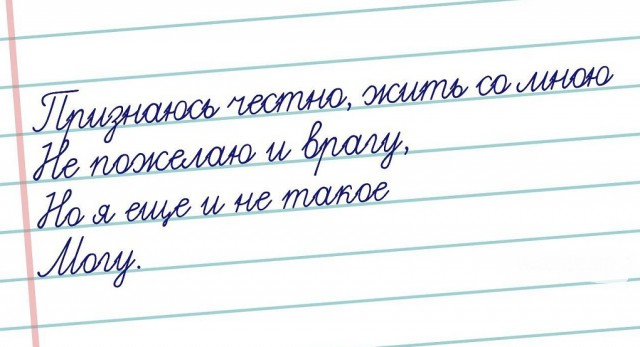 Признаюсь честно, жить со мною
Не пожелаю и врагу,
Но я еще и не такое
Могу.